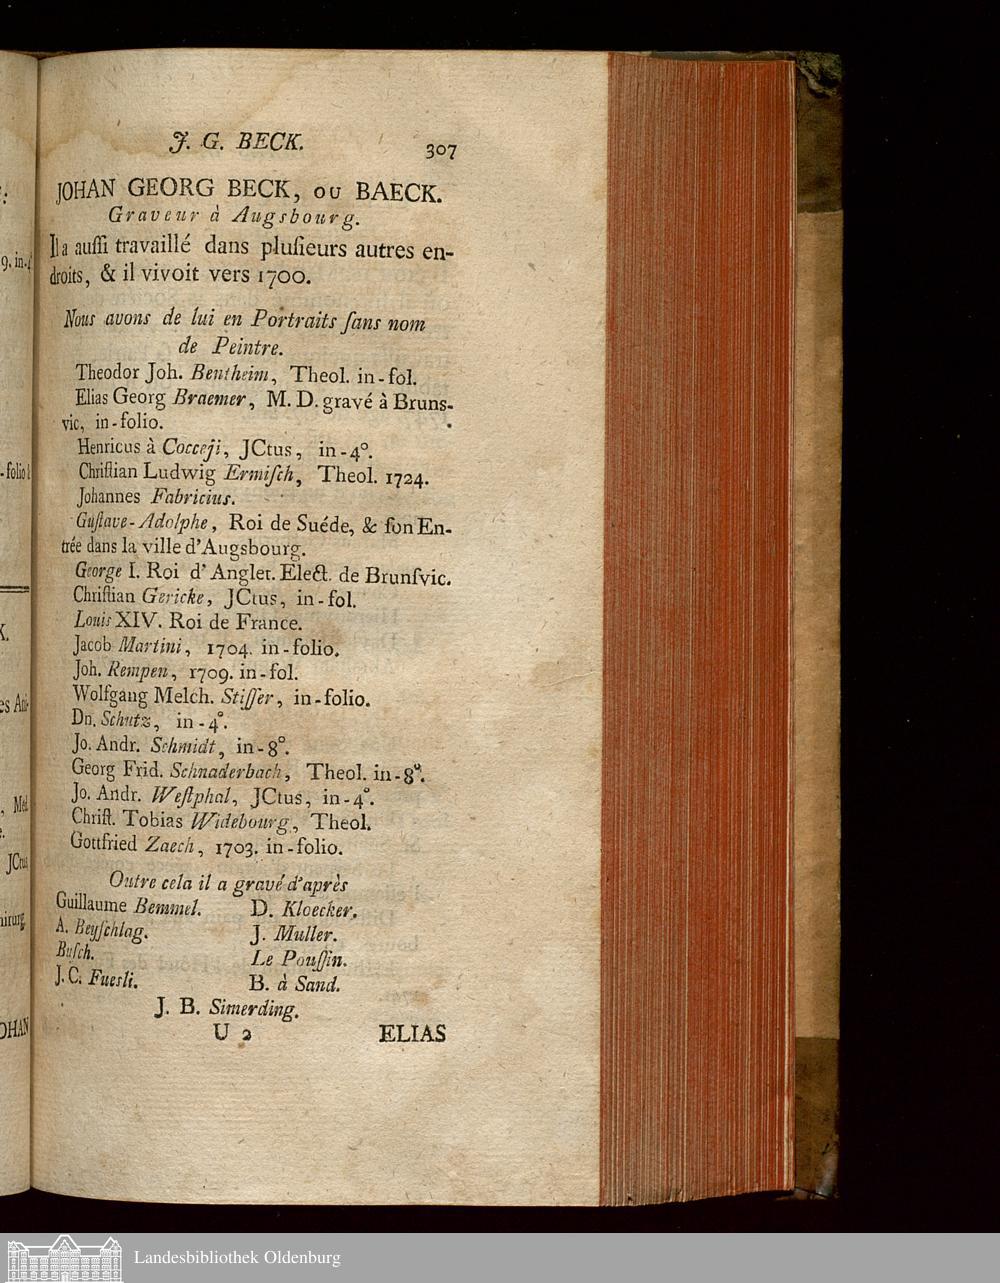 J. G. BECK.
307
JOHAN GEORG BECK, OU BAECK.
Graveur à Augsbourg.
Il a auſſi travaillé dans pluſieurs autres en-
droits, & il vivoit vers 1700.
Nous avons de lui en Portraits ſans nom
de Peintre.
Theodor Joh. Bentheim, Theol. in-fol.
Elias Georg Braemer, M. D. gravé à Bruns-
vic, in-folio.
Henricus à Cocceji, JCtus, in-4°.
Chriſtian Ludwig Ermiſch, Theol. 1724.
Johannes Fabricius.
Guſtave-Adolphe, Roi de Suéde, & ſon En-
trée dans la ville d'Augsbourg.
George I. Roi d'Anglet. Elect. de Brunſvic.
Chriſtian Gericke, JCtus, in-fol.
Louis XIV. Roi de France.
Jacob Martini, 1704. in-folio.
Joh. Rempen, 1709. in-fol.
Wolfgang Melch. Stiſſer, in-folio.
Dn. Schutz, in-4°.
Jo. Andr. Schmidt, in-8°.
Georg Frid. Schnaderbach, Theol. in-8°.
Jo. Andr. Weſtphal, JCtus, in-4°.
Chriſt. Tobias Widebourg, Theol.
Gottfried Zaech, 1703. in-folio.
Outre cela il a gravé d'après
Guillaume Bemmel. D. Kloecker.
A. Beyſchlag. J. Muller.
Buſch. Le Pouſſin.
J. C. Fuesli. B. à Sand.
J. B. Simerding.
U 2 ELIAS
9. in-4
-folio
es Ani-
, Med.
JCtus
hirurg.
OHAN
Landesbibliothek Oldenburg